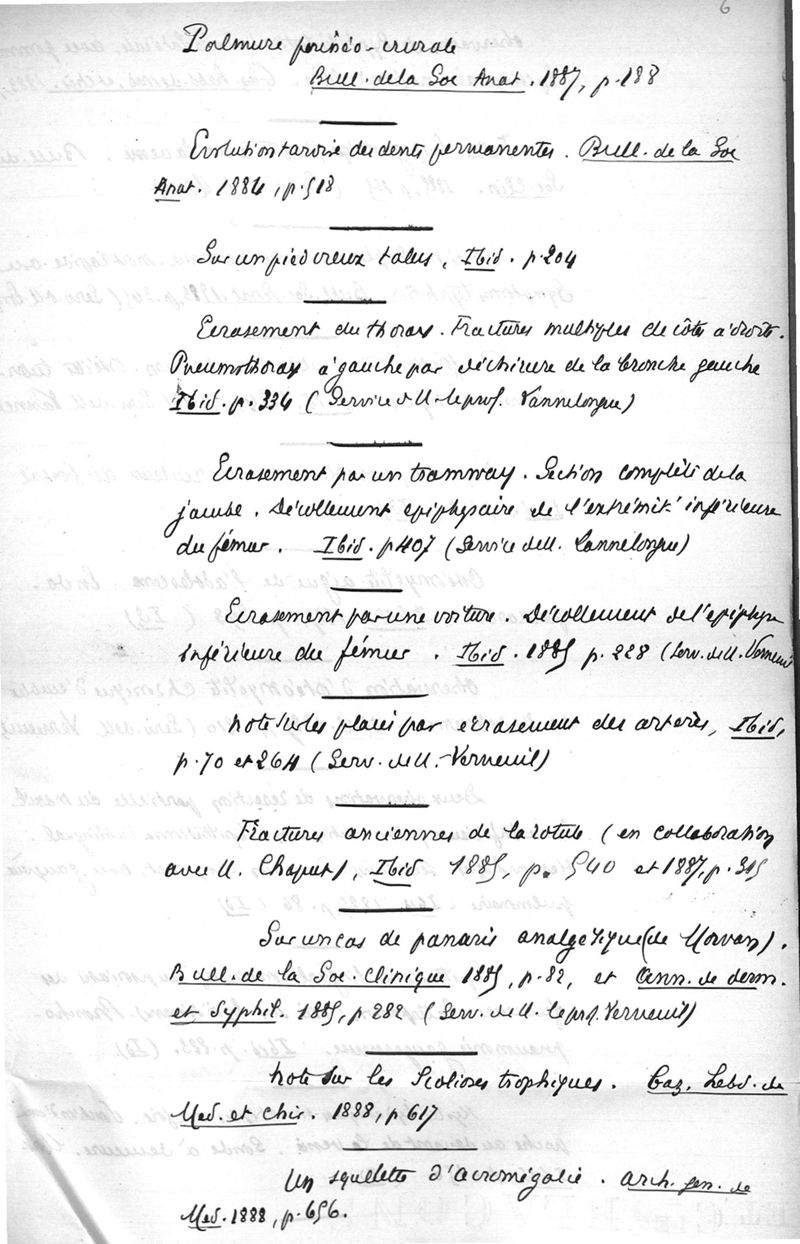 6
Palmure périnéo-crurale
Bull. de la Soc Anat. 1887, p. 188
Evolution tardive des dents permanentes. Bull. de la Soc
Anat. 1884, p. 518
Sur un pied creux talus, Ibid. p. 204
Ecrasement du thorax. Fractures multiples de côtes à droite.
Pneumothorax à gauche par déchirure de la bronche gauche
Ibid. p. 334 (Service de M. le prof. Lannelongue)
Ecrasement par un tramway. Section complète de la
jambe. Décollement epiphysaire de l'extrémité inférieure
du fémur. Ibid. p 407 (Service de M. Lannelongue)
Ecrasement par une voiture. Décollement de l'epiphyse
inférieure du fémur. Ibid. 1885 p. 228 (Serv. de M. Verneuil
Note sur les plaies par écrasement des artères, Ibid,
p. 70 et 264 (Serv. de M. Verneuil)
Fractures anciennes de la rotule (en collaboration
avec M. Chaput), Ibid 1885, p. 540 et 1887, p. 315
Sur un cas de panaris analgésique (de Morvan).
Bull. de la Soc. Clinique 1885, p. 82, et Ann. de derm.
et Syphil. 1885, p 282 (Serv. de M. le prof. Verneuil)
Note sur les Scolioses trophiques. Gaz. hebd. de
Med. et Chir. 1888, p 617
Un squelette d'acromégalie. Arch. gen. de
Med. 1888, p. 656.